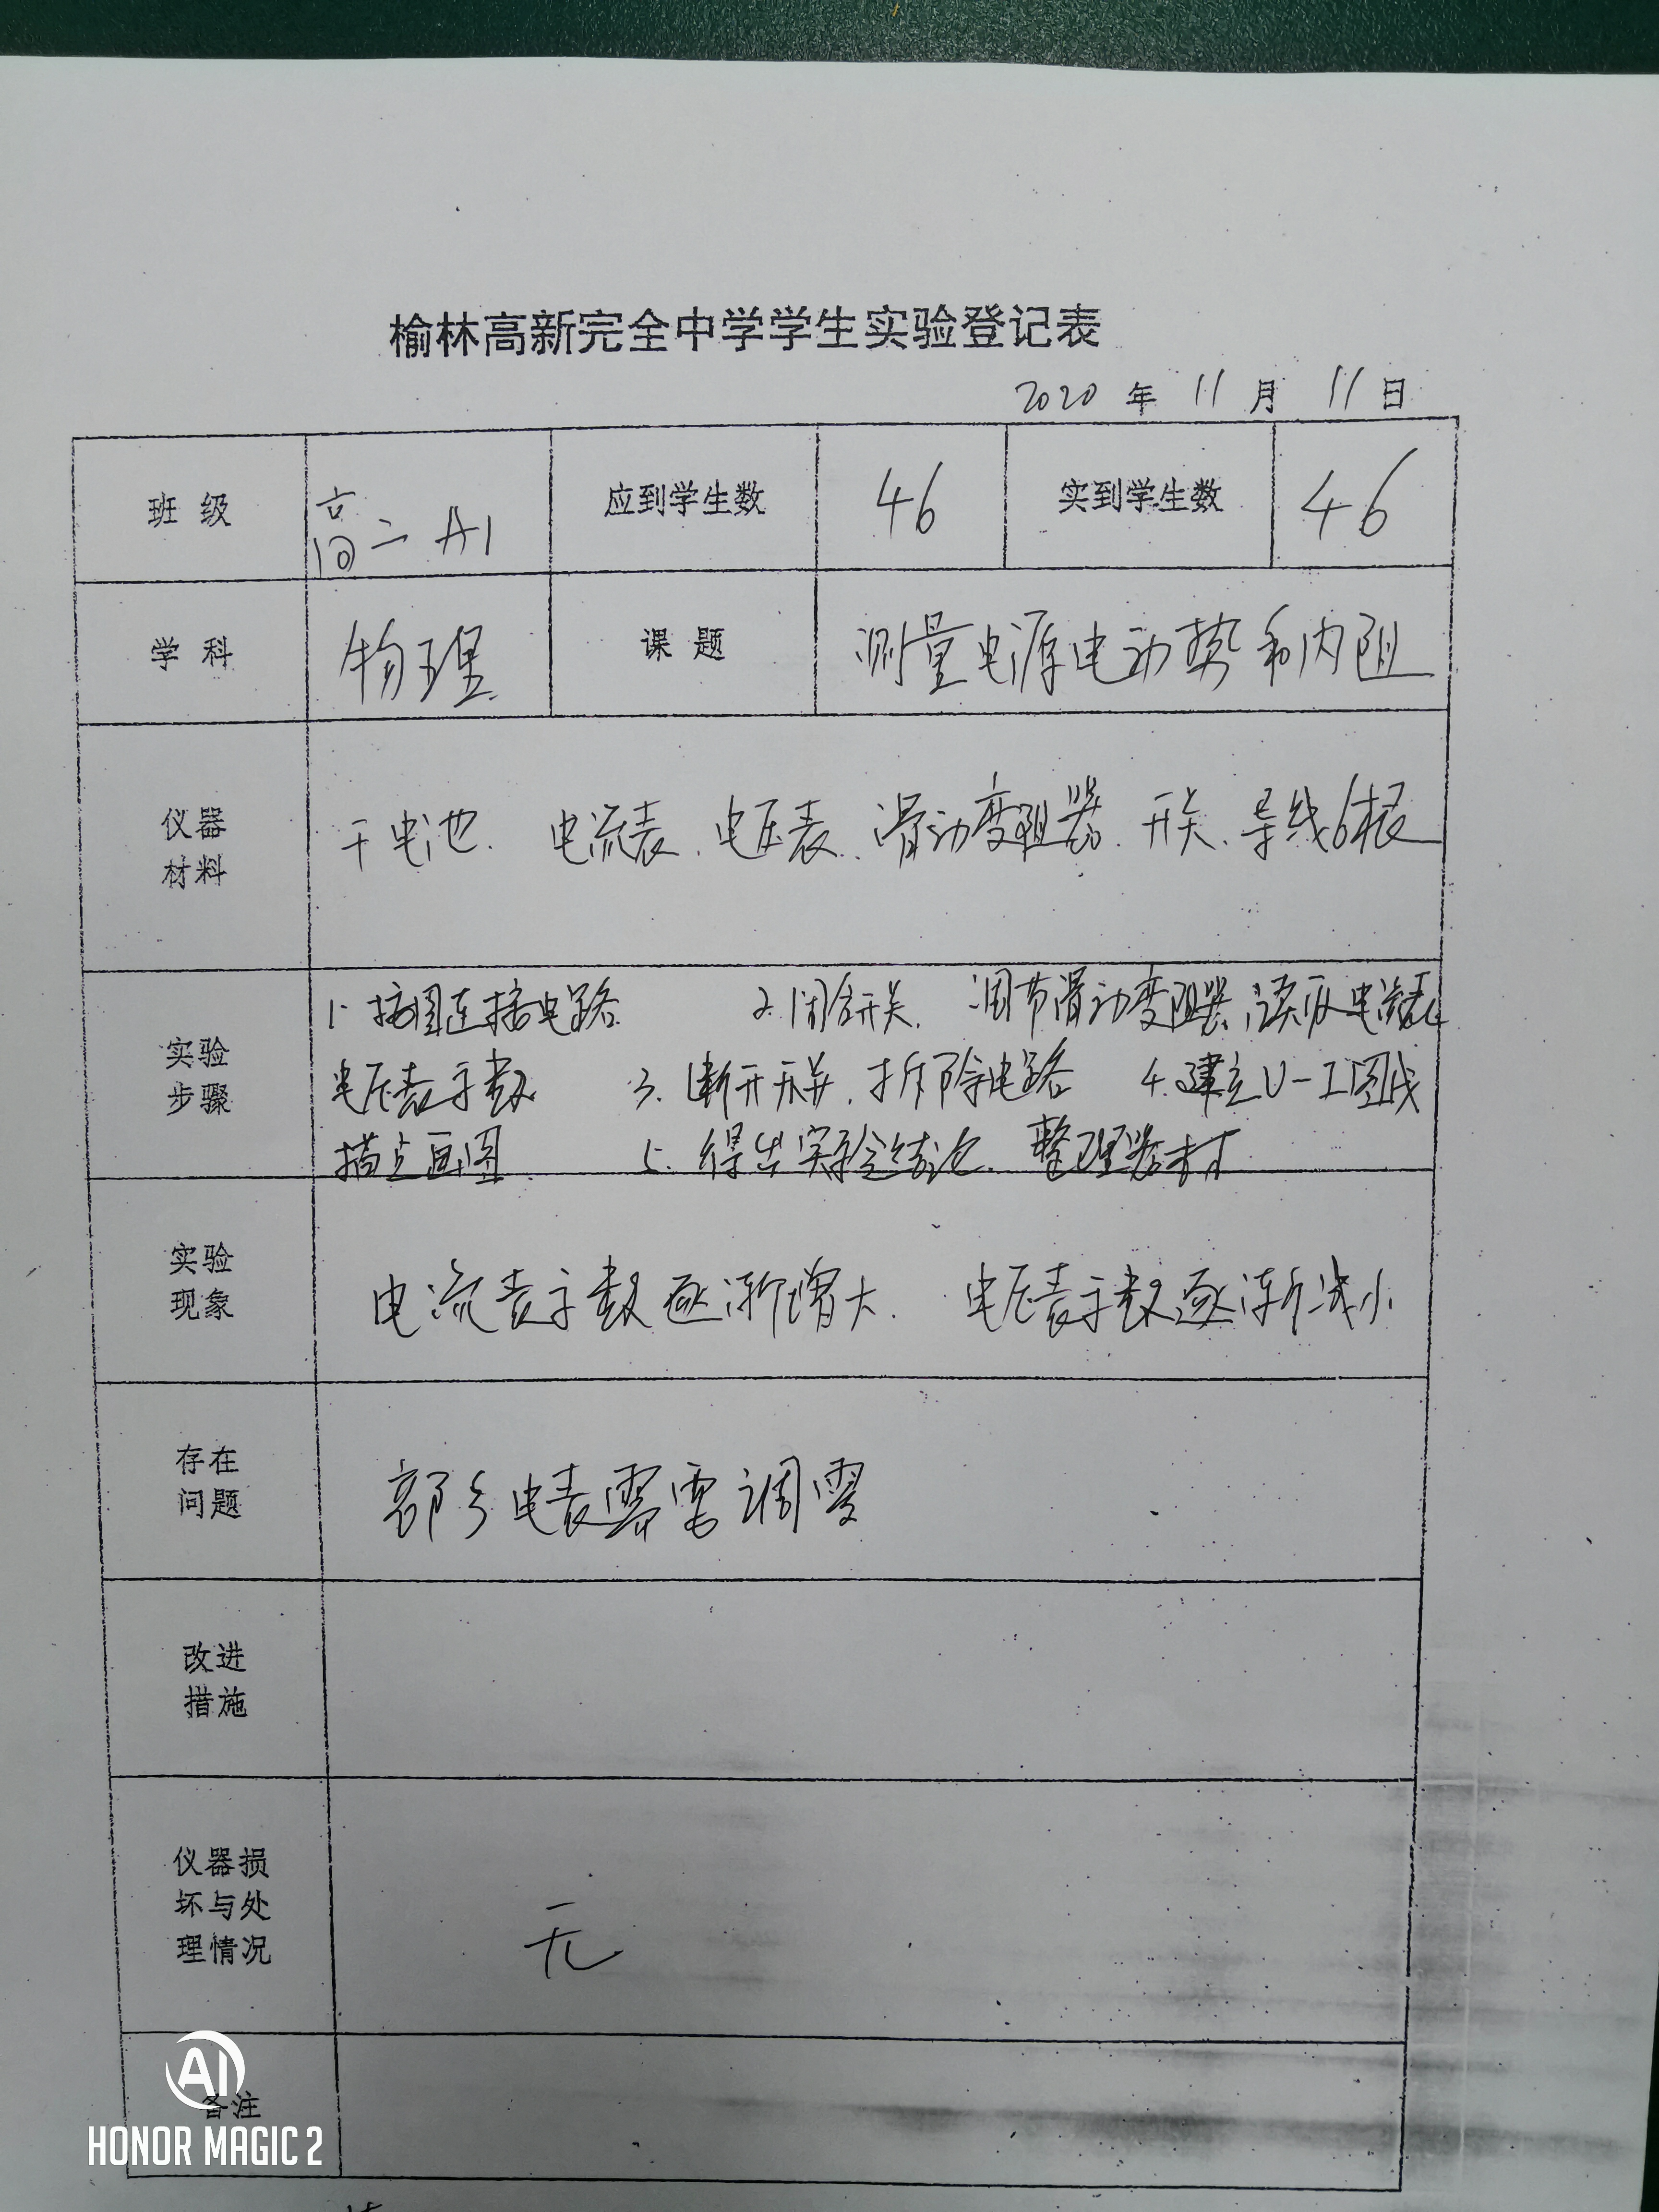 榆林高新完全中学学生实验登记表
2020 年 11 月 11 日
班 级 高二 A1 应到学生数 46 实到学生数 46
学 科 物理 课 题 测量电源电动势和内阻
仪器
材料
干电池、电流表、电压表、滑动变阻器、开关、导线6根
实验
步骤
1. 按图连接电路 2. 闭合开关，调节滑动变阻器，读取电流表
电压表示数 3. 断开开关，拆除电路 4. 建立U-I图线
描点画图 5. 得出实验结论，整理器材
实验
现象
电流表示数逐渐增大，电压表示数逐渐减小
存在
问题
部分电表需要调零
改进
措施
仪器损
坏与处
理情况
无
备注
AI
HONOR MAGIC 2